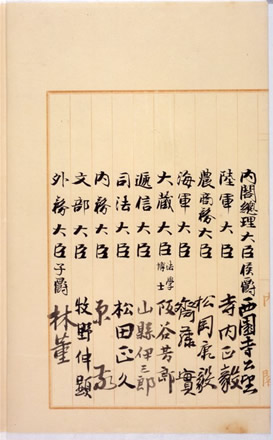 內閣總理大臣侯爵西園寺公望
陸軍大臣寺内正毅
農商務大臣松岡康毅
海軍大臣齋藤實
大藏大臣法學博士阪谷芳郎
遞信大臣山縣伊三郎
司法大臣松田正久
内務大臣原敬
文部大臣牧野伸顯
外務大臣子爵林董